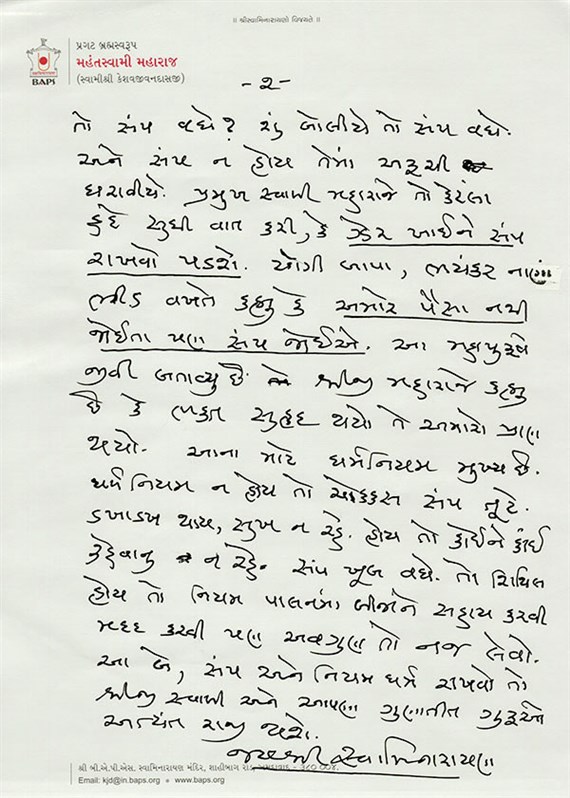 ॥ શ્રીસ્વામિનારાયણો વિજયતે ॥
પ્રગટ બ્રહ્મસ્વરૂપ
મહંતસ્વામી મહારાજ
(સ્વામીશ્રી કેશવજીવનદાસજી)
BAPS
-૨-
તો સંપ વધે? શું બોલીયે તો સંપ વધે.
અને સંપ ન હોય તેમાં અરૂચી
ધરાવીયે. પ્રમુખ સ્વામી મહારાજે તો કેટલા
હદે સુધી વાત કરી, કે ઝેર ખાઈને સંપ
રાખવો પડશે. યોગી બાપા, ભયંકર નાણાં
ભીડ વખતે કહ્યુ કે અમોરે પૈસા નથી
જોઈતા પણ સંપ જોઈએ. આ મહાપુરૂષે
જીવી બતાવ્યુ છે શ્રીજી મહારાજે કહ્યુ
છે કે ભક્ત સુહૃદ થયો તે અમારો પ્રાણ
થયો. આના માટે ધર્મનિયમ મુખ્ય છે.
ધર્મ નિયમ ન હોય તો ચોકકસ સંપ તૂટે.
ડખાડખ થાય, સુખ ન રહે. હોય તો કોઈને કાંઈ
કહેવાનુ ન રહે. સંપ ખૂબ વધે. તો શિથિલ
હોય તો નિયમ પાલનમાં બીજાને સહાય કરવી
મદદ કરવી પણ અવગુણ તો નજ લેવો.
આ બે, સંપ અને નિયમ ધર્મ રાખવો તો
શ્રીજી સ્વામી અને આપણા ગુણાતીત ગુરૂઓ
અત્યંત રાજી થશે.
જયશ્રી સ્વામિનારાયણ
શ્રી બી.એ.પી.એસ. સ્વામિનારાયણ મંદિર, શાહીબાગ રોડ, અમદાવાદ - ૩૮૦ ૦૦૪.
Email: kjd@in.baps.org • www.baps.org